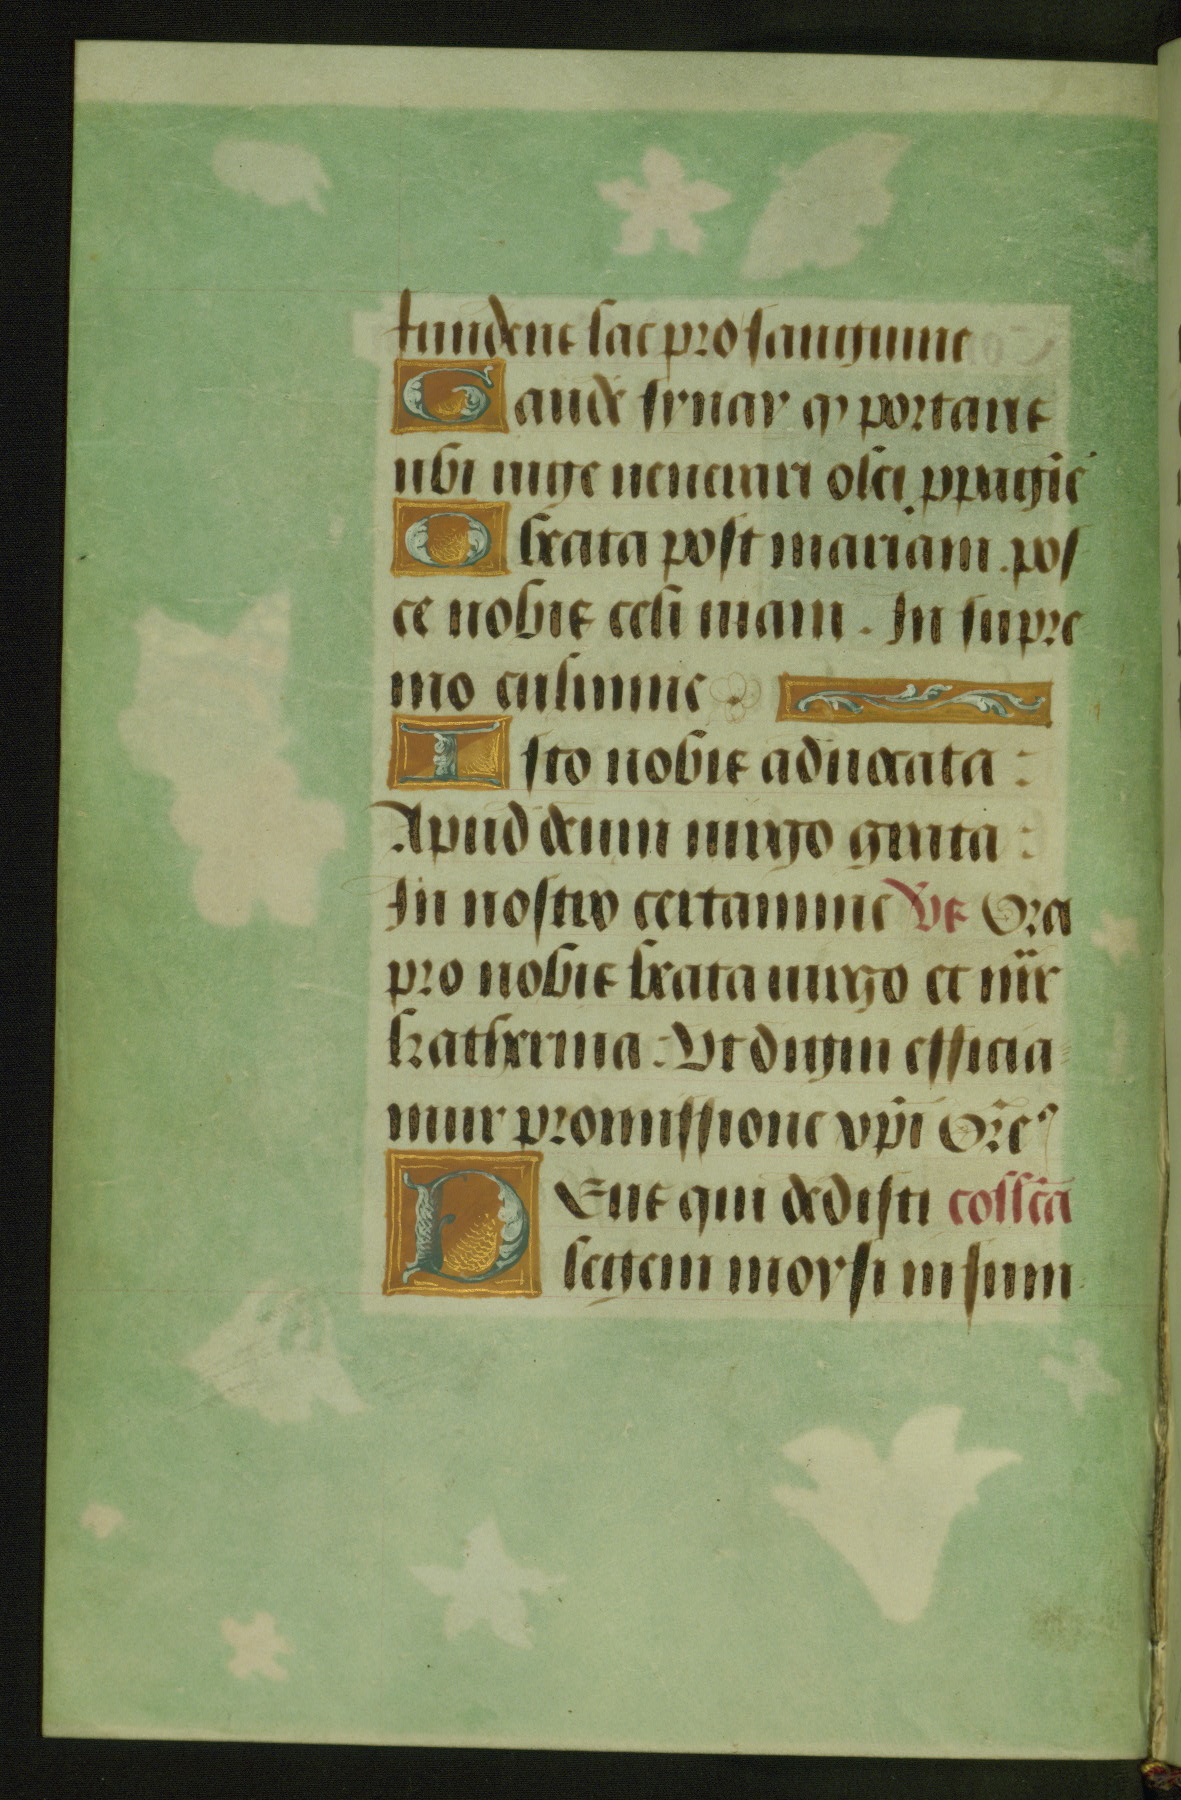 fundens lac pro sanguine
Gaude synay q portans
ubi iuge uenerari olei
O beata post mariam . pos
ce nobis celi manu . In supre
mo culmine
Isto nobis aduocata :
Apud deum uirgo grata :
In nostro certamine Vs Ora
pro nobis beata uirgo et mr̄
katherina : Vt digni efficia
mur promissione xp̄i Or̄es
Deus qui dedisti coll̄ca
legem moysi in sum